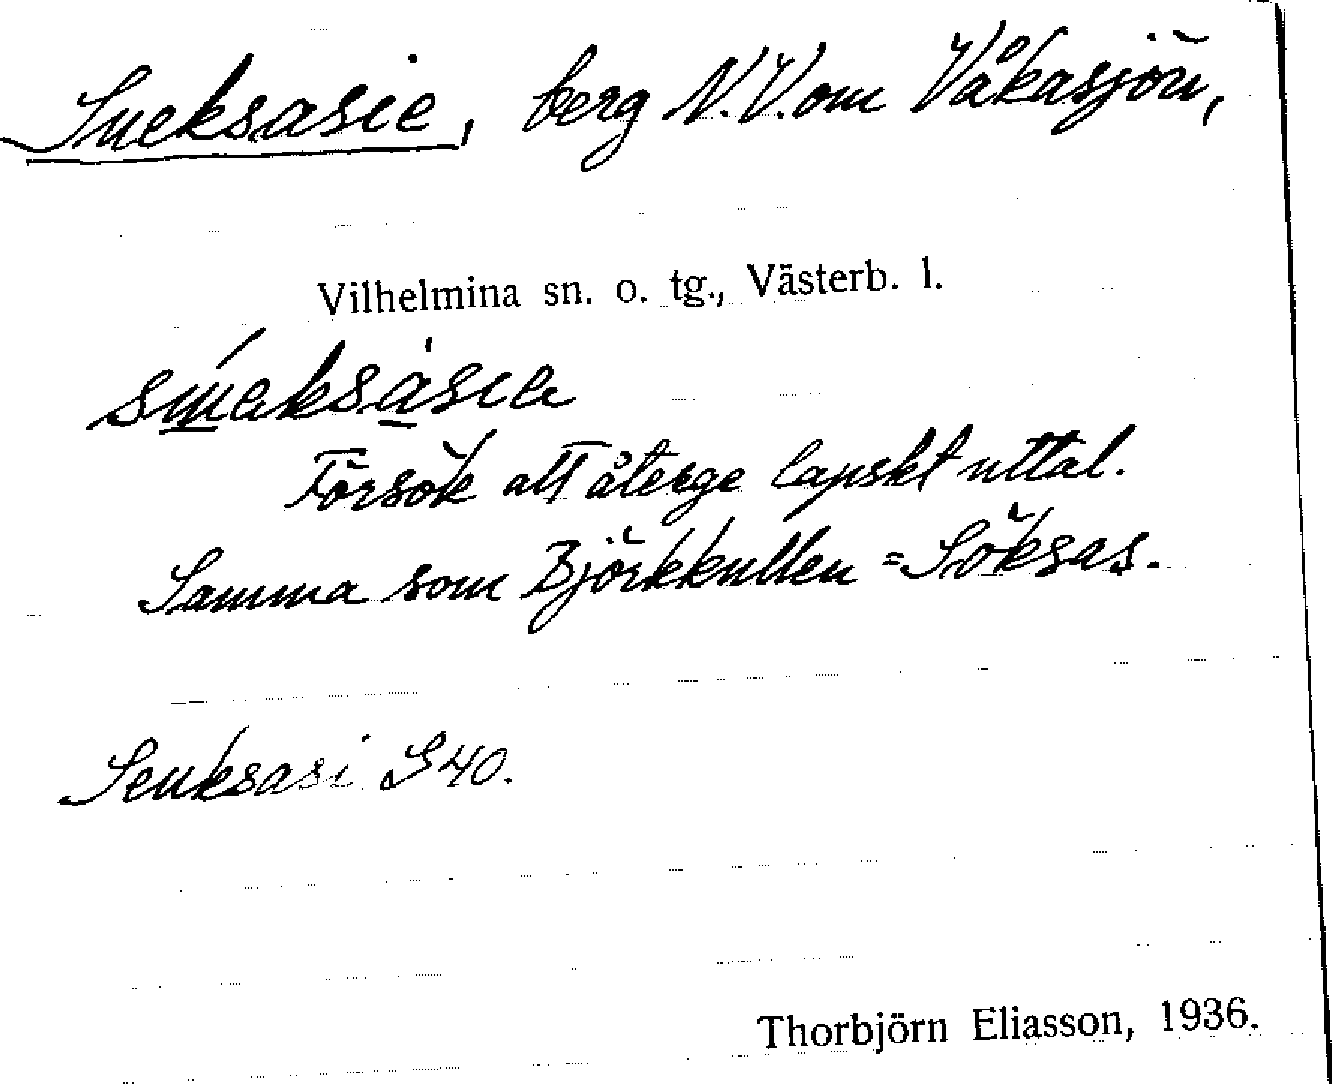 Sueksasie, berg N.V. om Våkasjön,
Vilhelmina sn. o. tg., Västerb. l.
Försök att återge lapskt uttal.
Samma som Björkkullen = Söksas.
Seuksasi S 40.
Thorbjörn Eliasson, 1936.